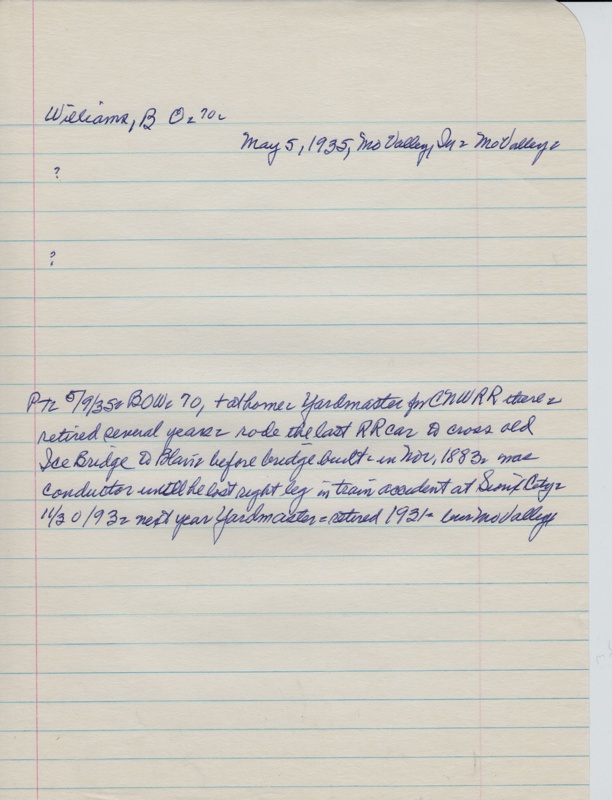 Williams, B O- 70-
May 5, 1935, Mo Valley, Ia- Mo Valley-
?
?
PT- 5/9/35- BOW- 70, + at home- Yardmaster for CNWRR there-
retired several years- rode the last RR car to cross old
Ice Bridge to Blair before bridge built- in Nov, 1883- was
conductor until he lost right leg in train accident at Sioux City-
11/30/93- next year Yardmaster- retired 1921- Mo Valley